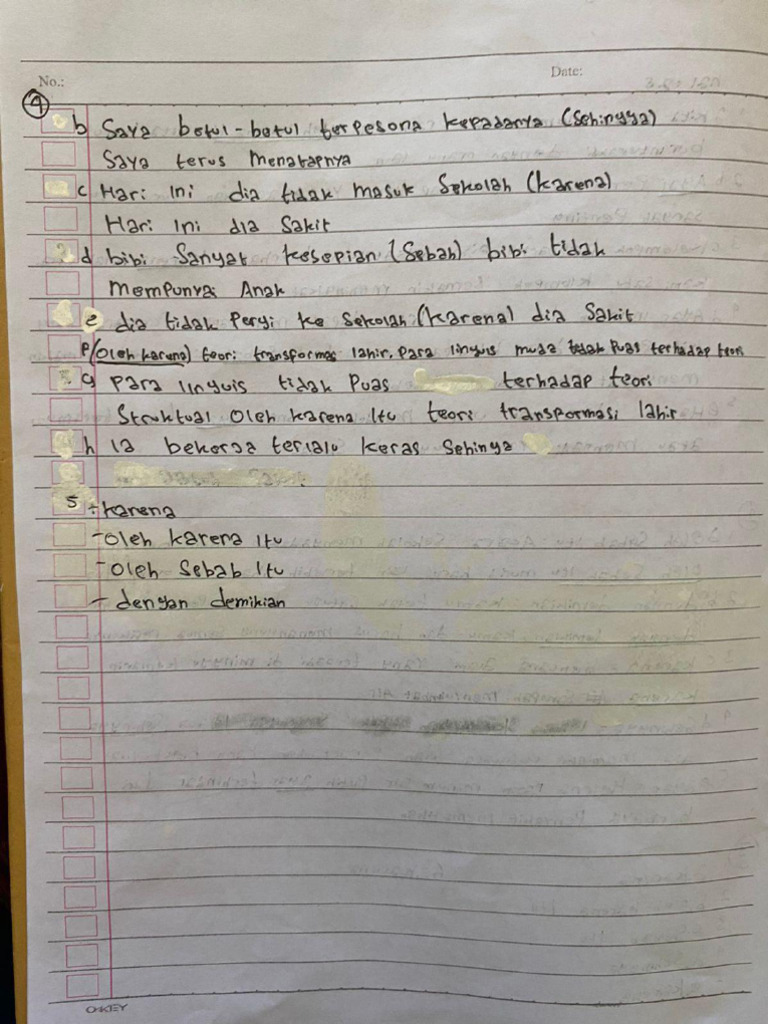 No.:
Date:
4
b Saya betul-betul terpesona kepadanya (Sehingga)
Saya terus menatapnya
c Hari ini dia tidak masuk Sekolah (karena)
Hari ini dia Sakit
d bibi Sangat kesepian (Sebab) bibi tidak
mempunyai Anak
e dia tidak Pergi ke Sekolah (karena) dia Sakit
F (Oleh karena) teori transformasi lahir, Para linguis muda tidak Puas terhadap teori
g Para linguis tidak Puas terhadap teori
Struktual Oleh karena Itu teori transformasi lahir
h Ia bekerja terlalu keras Sehinya
5 - karena
- Oleh karena Itu
- Oleh Sebab Itu
- dengan demikian
OKEY